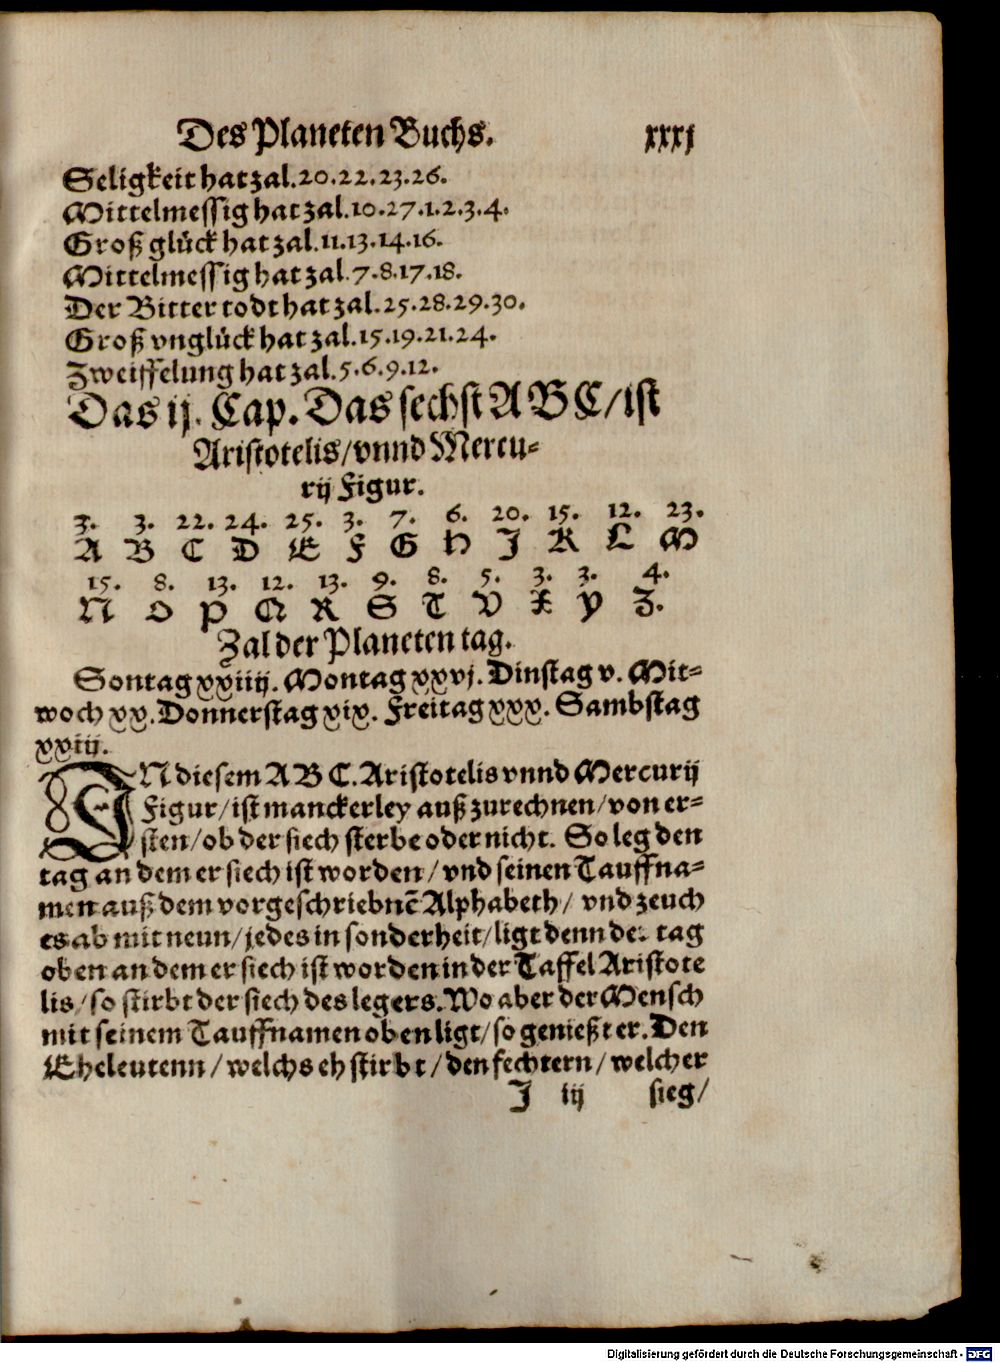 Des Planeten Buchs. xxxj
Seligkeit hat zal.20.22.23.26.
Mittelmessig hat zal.10.27.1.2.3.4.
Groß glück hat zal.11.13.14.16.
Mittelmessig hat zal.7.8.17.18.
Der Bitter todt hat zal.25.28.29.30.
Groß vnglück hat zal.15.19.21.24.
Zweiffelung hat zal.5.6.9.12.
Das ij. Cap. Das sechst A B C/ist
Aristotelis/vnnd Mercu-
rij Figur.
3. 3. 22. 24. 25. 3. 7. 6. 20. 15. 12. 23.
A B C D E F G H J K L M
15. 8. 13. 12. 13. 9. 8. 5. 3. 3. 4.
N O P Q R S T V X Y Z.
Zal der Planeten tag.
Sontag xxiiij. Montag xxvj. Dinstag v. Mit-
woch xx. Donnerstag xix. Freitag xxx. Sambstag
xxiij.
IN diesem A B C. Aristotelis vnnd Mercurij
Figur/ist manckerley auß zurechnen/von er-
sten/ob der siech sterbe oder nicht. So leg den
tag an dem er siech ist worden/vnd seinen Tauffna-
men auß dem vorgeschriebnē Alphabeth/ vnd zeuch
es ab mit neun/jedes in sonderheit/ligt denn der tag
oben an dem er siech ist worden in der Taffel Aristote
lis/so stirbt der siech des legers. Wo aber der Mensch
mit seinem Tauffnamen oben ligt/so genießt er. Den
Eheleutenn/welchs eh stirbt/den fechtern/welcher
J iij sieg/
Digitalisierung gefördert durch die Deutsche Forschungsgemeinschaft - DFG